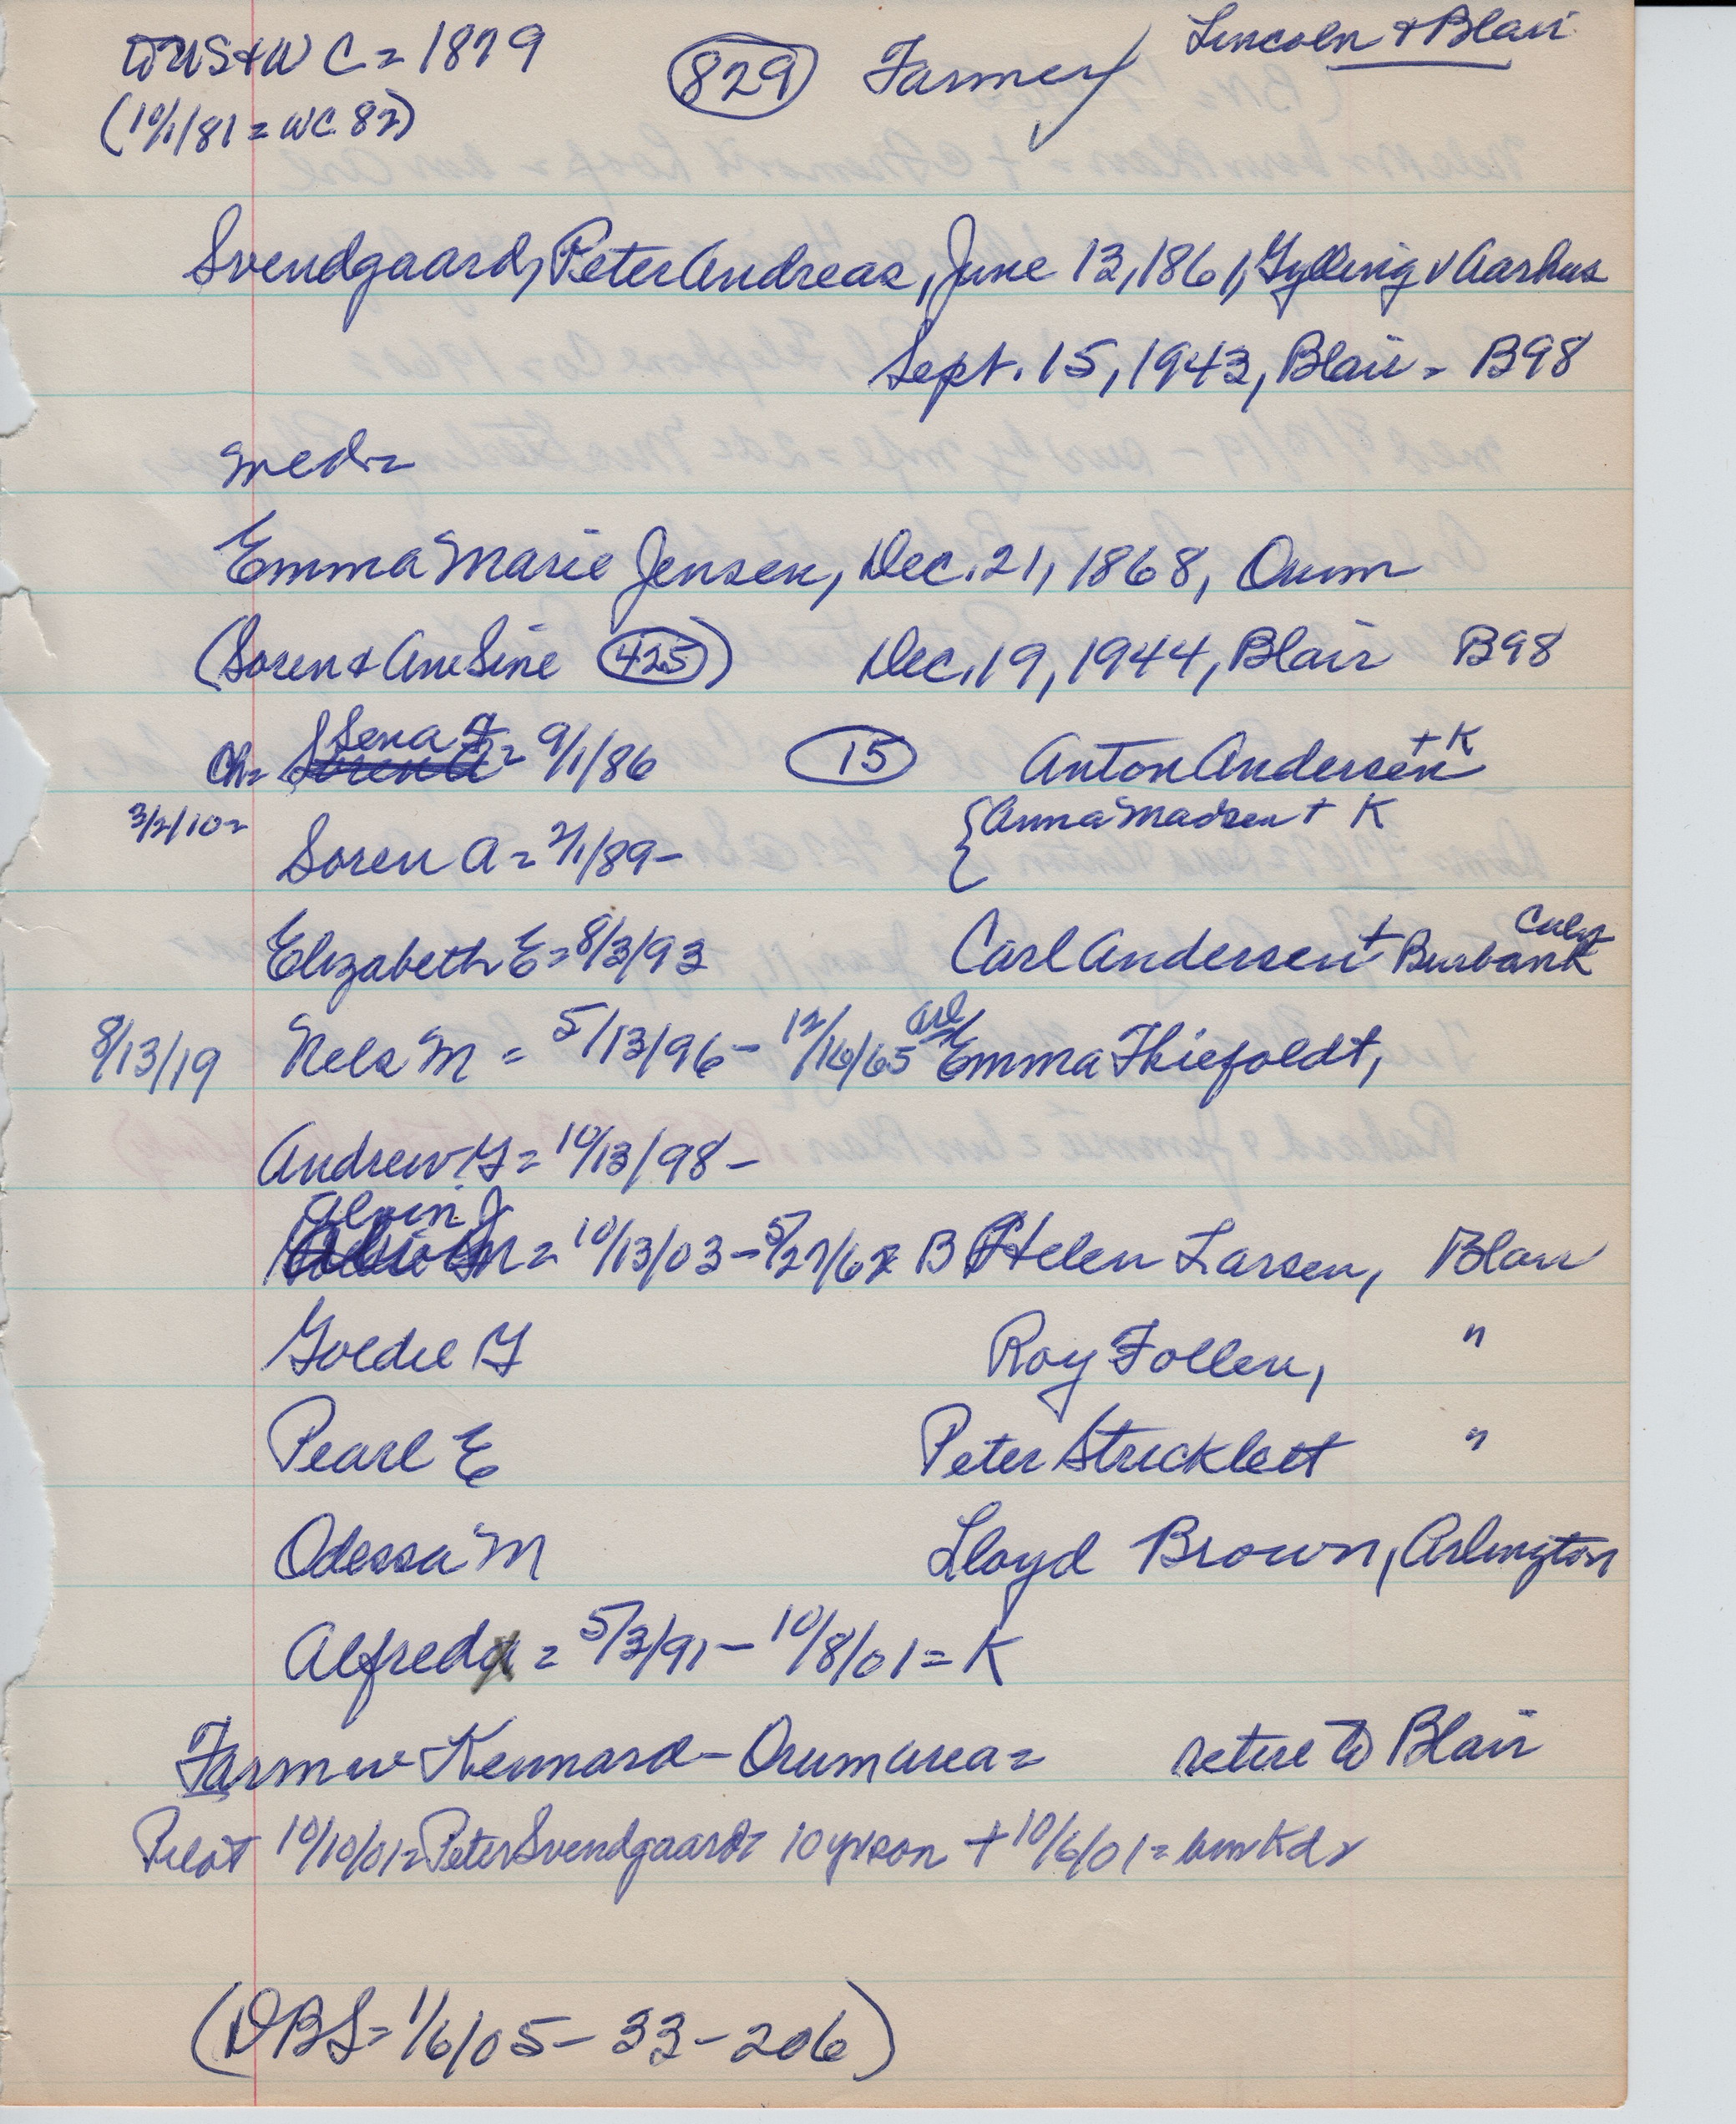 TO US & WC = 1879 (829) Farmer Lincoln & Blair
(10/1/81 = WC 82)
Svendgaard, Peter Andreas, June 13, 1861, Gylling v Aarhus
Sept. 15, 1943, Blair = B98
med =
Emma Marie Jensen, Dec. 21, 1868, Orum
(Soren & Ane Sine (425)) Dec. 19, 1944, Blair B98
Ch = Sena = 9/1/86 (15) Anton Andersen + K
3/2/10 = Soren A = 2/1/89 - {Anna Madsen + K
Elizabeth E = 8/3/93 Carl Andersen + Burbank Calif
8/13/19 Nels M = 5/13/96 - 12/16/65 Arl Emma Thiefoldt,
Andrew G = 10/13/98 -
Alvin J = 10/13/03 - 5/27/62 B Helen Larsen, Blair
Goldie G Roy Follen, "
Pearl E Peter Stricklett "
Odessa M Lloyd Brown, Arlington
Alfred = 5/3/91 - 10/8/01 = K
Farm w Kennard - Orum area = retire to Blair
Pilot 10/10/01 = Peter Svendgaard = 10 yr son + 10/6/01 = bur Kd =
(DBS = 1/6/05 - 33 - 206)